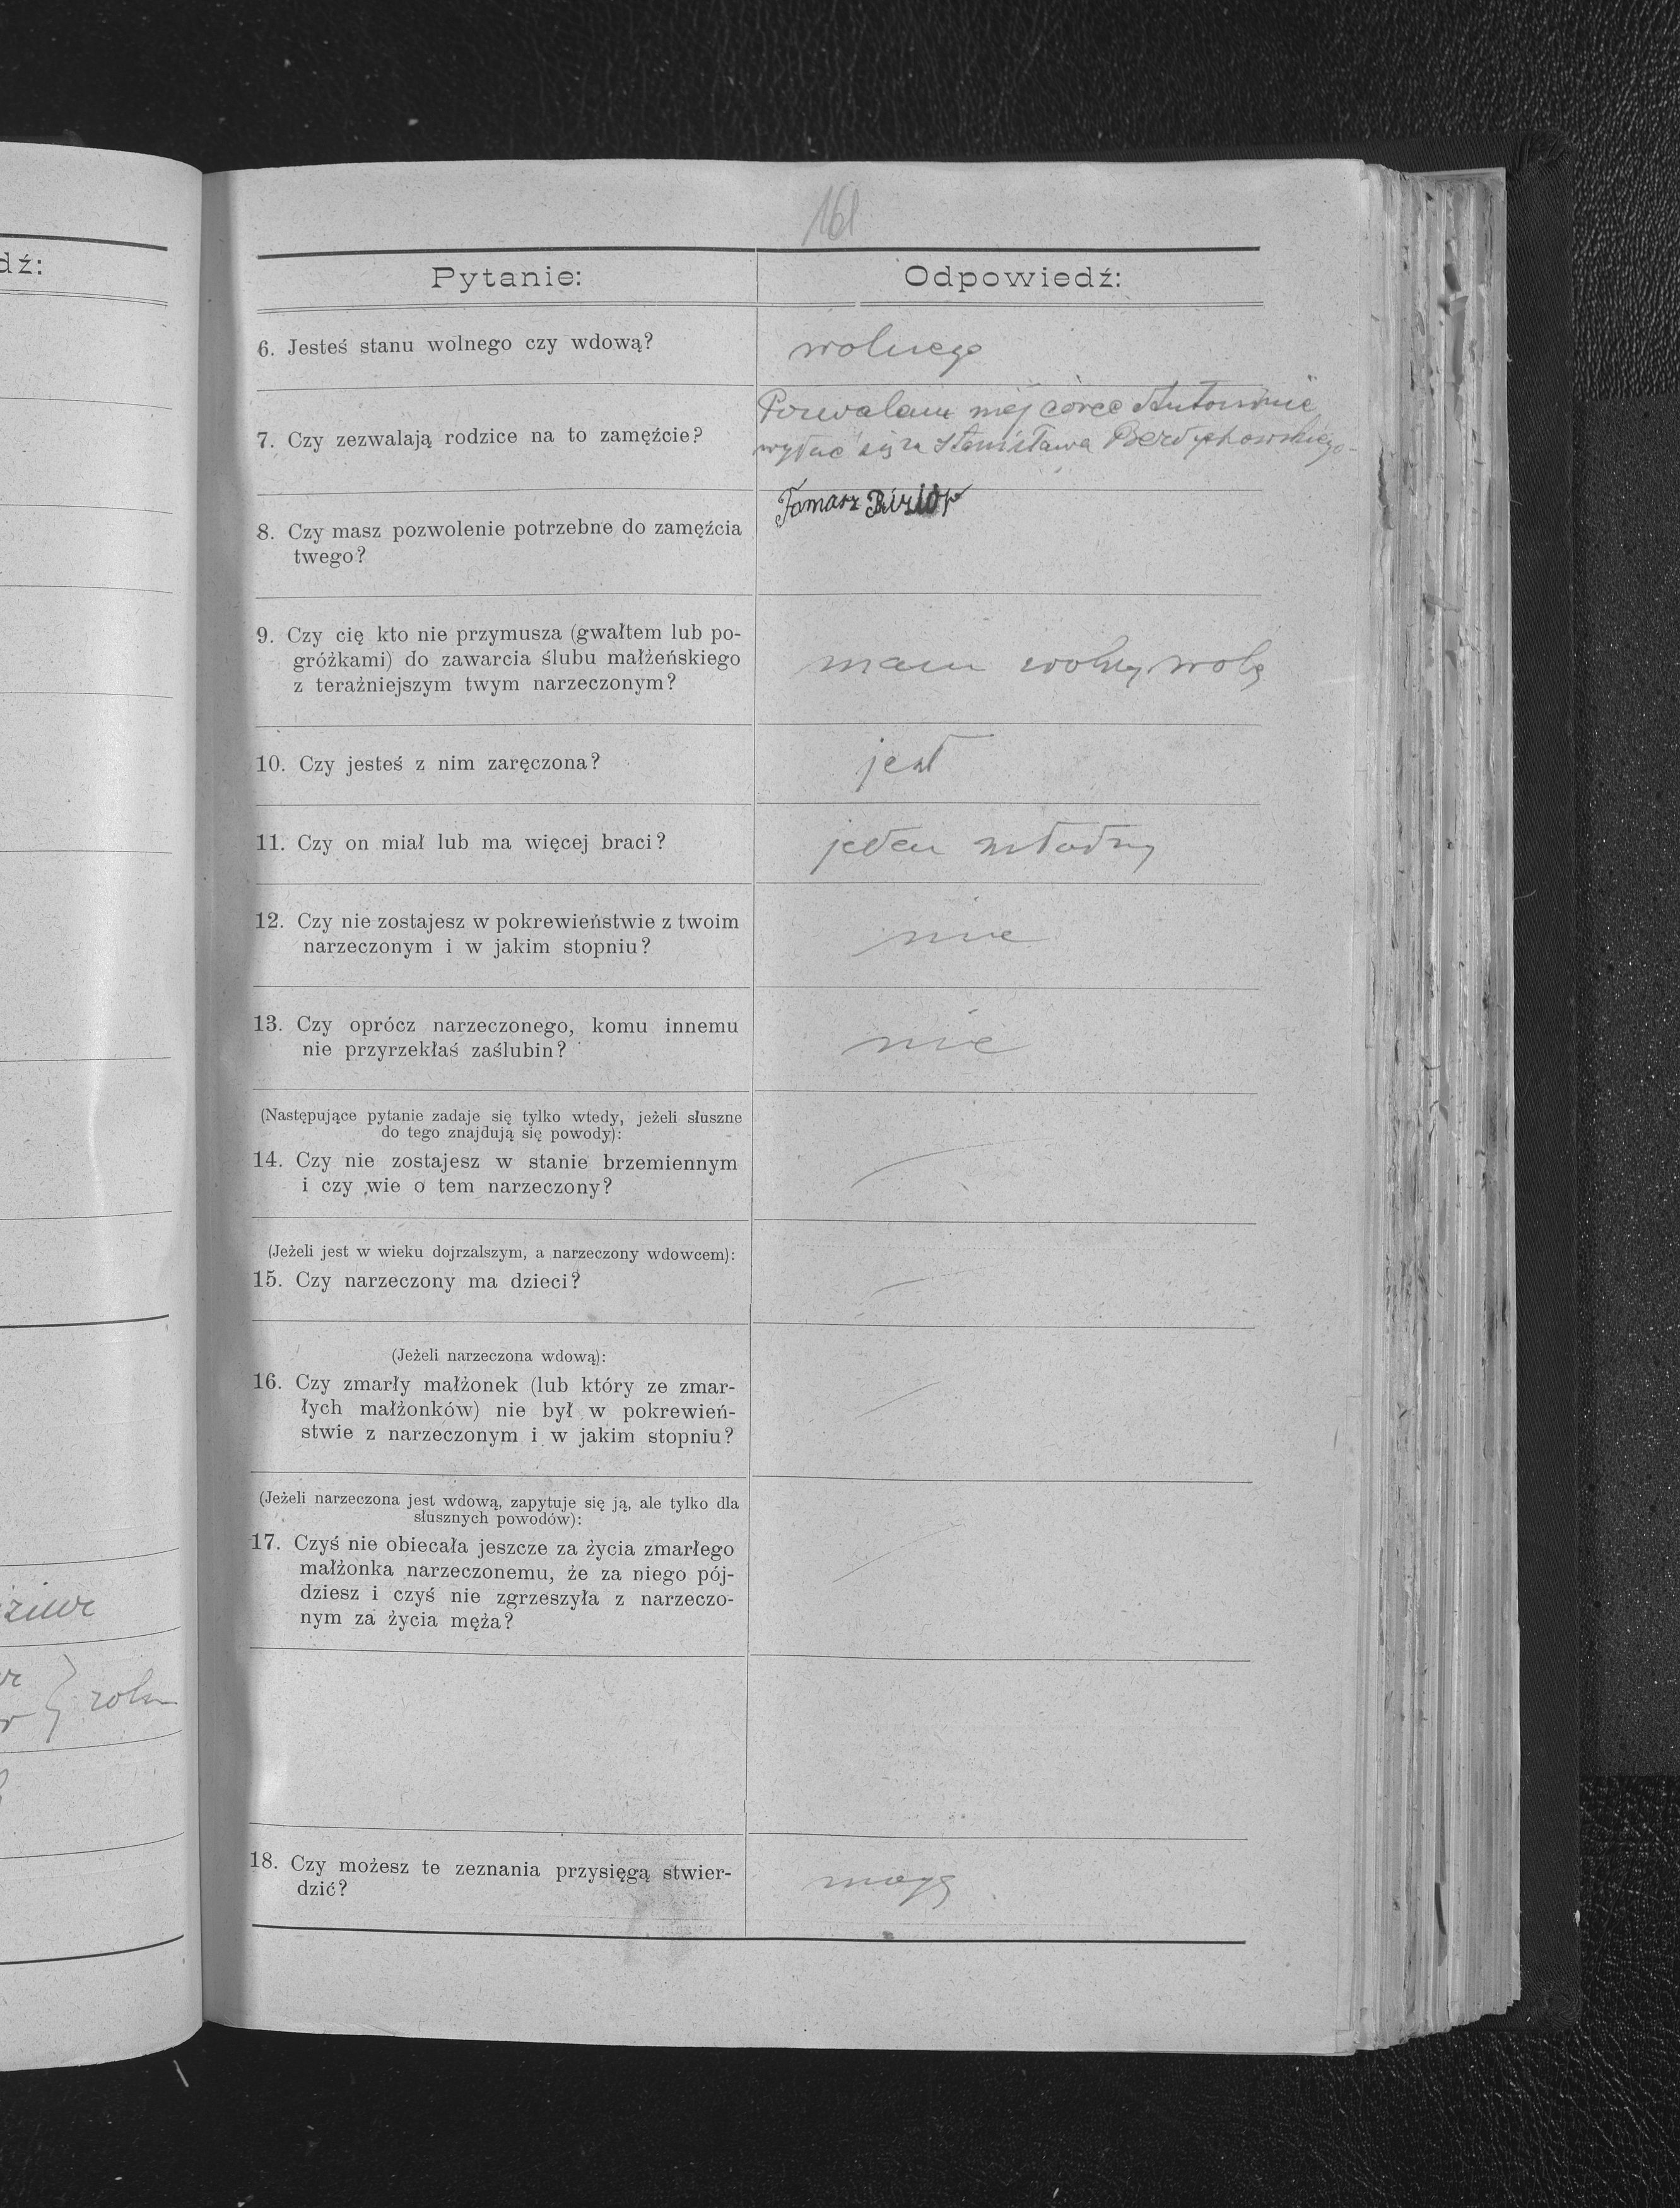 161
dź:
Pytanie:
Odpowiedź:
6. Jesteś stanu wolnego czy wdową?
wolnego
7. Czy zezwalają rodzice na to zamęźcie?
Pozwalam mej córce Antoninie
wydać się za Stanisława Berdychowskiego-
Tomarz
8. Czy masz pozwolenie potrzebne do zamęźcia
twego?
9. Czy cię kto nie przymusza (gwałtem lub po-
gróżkami) do zawarcia ślubu małżeńskiego
z teraźniejszym twym narzeczonym?
mam wolną wolę
10. Czy jesteś z nim zaręczona?
jest
11. Czy on miał lub ma więcej braci?
jeden
12. Czy nie zostajesz w pokrewieństwie z twoim
narzeczonym i w jakim stopniu?
nie
13. Czy oprócz narzeczonego, komu innemu
nie przyrzekłaś zaślubin?
nie
(Następujące pytanie zadaje się tylko wtedy, jeżeli słuszne
do tego znajdują się powody):
14. Czy nie zostajesz w stanie brzemiennym
i czy wie o tem narzeczony?
(Jeżeli jest w wieku dojrzalszym, a narzeczony wdowcem):
15. Czy narzeczony ma dzieci?
(Jeżeli narzeczona wdową):
16. Czy zmarły małżonek (lub który ze zmar-
łych małżonków) nie był w pokrewień-
stwie z narzeczonym i w jakim stopniu?
(Jeżeli narzeczona jest wdową, zapytuje się ją, ale tylko dla
słusznych powodów):
17. Czyś nie obiecała jeszcze za życia zmarłego
małżonka narzeczonemu, że za niego pój-
dziesz i czyś nie zgrzeszyła z narzeczo-
nym za życia męża?
18. Czy możesz te zeznania przysięgą stwier-
dzić?
mogę